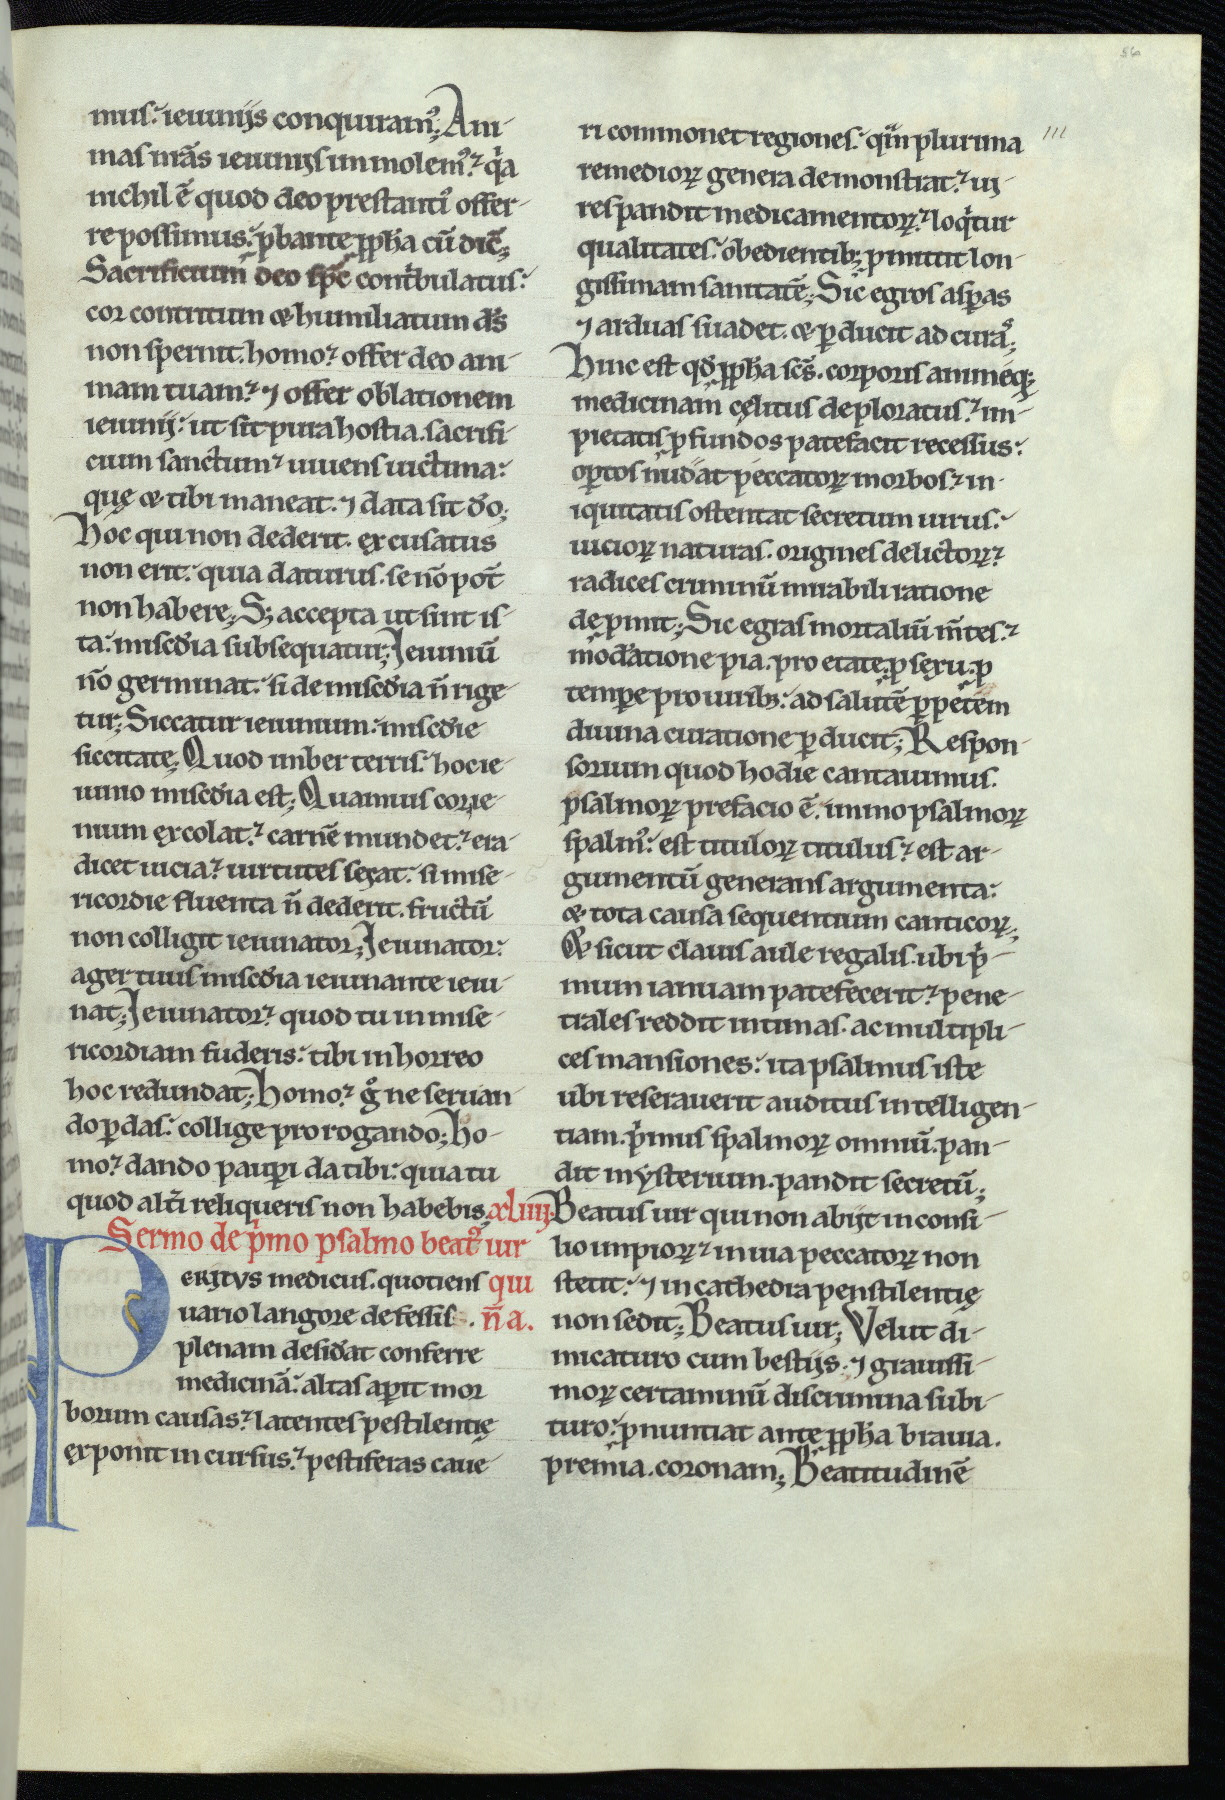 56
mus: ieiunijs conquiram᷒; Ani-
mas nr̄as ieiunijs immolem᷒: q̇a
nichil ē quod deo prestanti᷒ offer-
re possimus: ꝓbante ꝓph̄a cū dic̄;
Sacrificium deo sp̄c cont̓bulatus:
cor contritum & humiliatum ds̄
non spernit. homo: offer deo ani-
mam tuam: ⁊ offer oblationem
ieiunij: ut sit pura hostia. sacrifi-
cium sanctum: uiuens uictima:
quę & tibi maneat. ⁊ data sit do;
Hoc qui non dederit. excusatus
non erit: quia daturus. se nō pot̄
non habere; S; accepta ut sint is-
ta: mis̄c̄dia subsequatur; Ieiuniū
nō germinat: si de mis̄c̄dia n̄ rige-
tur; Siccatur ieiunium: mis̄c̄die
siccitate; Quod imber terris: hoc ie-
iunio mis̄c̄dia est; Quamuis cor ie-
nium excolat: carnē mundet: era-
dicet uicia: uirtutes serat: si mise-
ricordie fluenta n̄ dederit. fructū
non colligit ieiunator; Ieiunator:
ager tuus mis̄c̄dia ieiunante ieiu-
nat; Ieiunator: quod tu in mise-
ricordiam fuderis: tibi in horreo
hoc redundat; Homo: g̊ ne seruan
do ꝑdas: collige prorogando; Ho-
mo: dando pauꝑi da tibi: quia tu
quod alt̓i reliqueris non habebis; xliiij.
Sermo de p̓mo psalmo beat᷒ uir
qui
n̄ a.
PERITVS medicus. quotiens
uario langore defessis.
plenam desid̓at conferre
medicinā: altas aꝑit mor
borum causas: latentes pestilentię
exponit incursus: pestiferas caue-
111
ri commonet regiones: qm̄ plurima
remedioꝝ genera demonstrat: ui-
res pandit medicamentoꝝ: loq̇tur
qualitates: obedientib; ꝓmittit lon-
gissimam sanitatē; Sic egros asꝑas
⁊ arduas suadet. & ꝑducit ad curas;
Hinc est qd̄ ꝓph̄a sc̄s. corporis animęq;
medicinam cęlitus deploratus: im-
pietatis ꝓfundos patefacit recessus:
oꝑtos nudat peccatoꝝ morbos: in-
iquitatis ostentat secretum uirus:
uicioꝝ naturas. origines delictoꝝ:
radices criminū mirabili ratione
depmit; Sic egras mortaliū m̄tes:
mod̓atione pia. pro etate: ꝓ sexu. ꝓ
tempe pro uirib;: ad salutē ꝑpetem
diuina curatione ꝑducit; Respon-
sorium quod hodie cantauimus.
psalmoꝝ prefacio ē. immo psalmoꝝ
spalm᷒: est tituloꝝ titulus: est ar-
gumentū generans argumenta:
& tota causa sequentium canticoꝝ;
Et sicut clauis aule regalis. ubi p̓-
mum ianuam patefecerit: pene-
trales reddit intimas. ac multipli-
ces mansiones: ita psalmus iste
ubi reserauerit auditus intelligen-
tiam. p̓mus spalmoꝝ omniū. pan-
dit mysterium. pandit secretū;
Beatus uir qui non abijt in consi-
lio impioꝝ: in uia peccatoꝝ non
stetit: ⁊ in cathedra penstilentię
non sedit; Beatus uir; Velut di-
micaturo cum bestijs. ⁊ grauissi-
moꝝ certaminū discrimina subi-
turo: ꝓnuntiat ante ꝓph̄a brauia.
premia. coronam; Beatitudinē